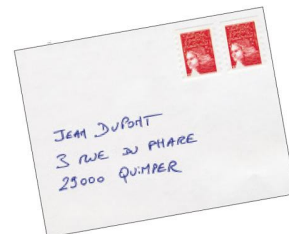 JEAN DUPONT
3 RUE DU PHARE
29000 QUIMPER